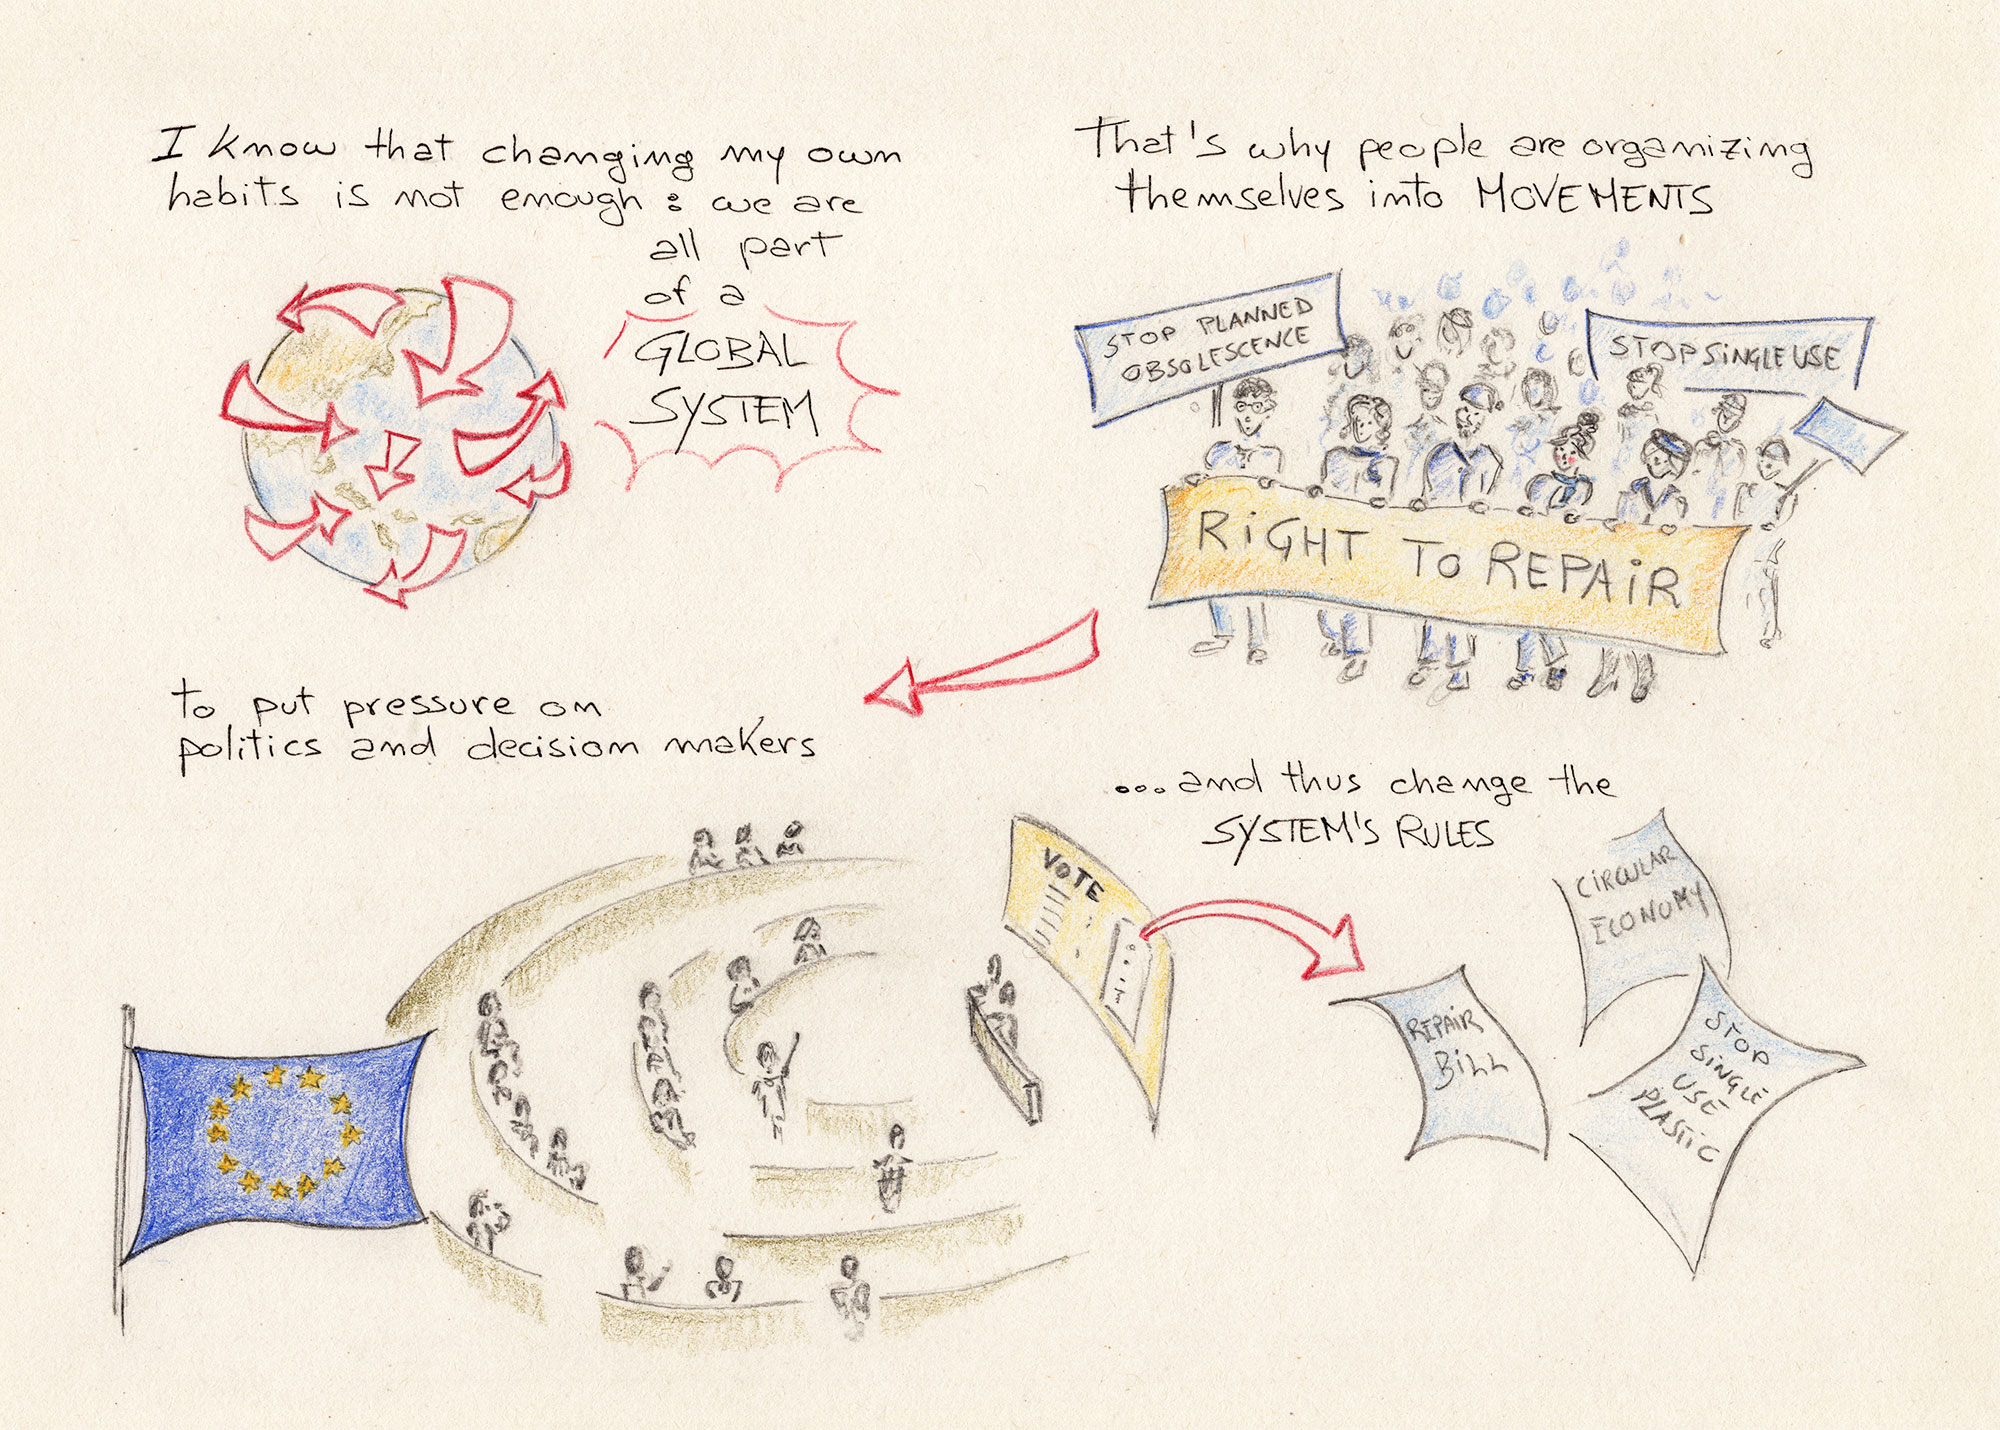 I know that changing my own
habits is not enough : we are
all part
of a
GLOBAL
SYSTEM
That's why people are organizing
themselves into MOVEMENTS
STOP PLANNED
OBSOLESCENCE
STOP SINGLE USE
RIGHT TO REPAIR
to put pressure on
politics and decision makers
...and thus change the
SYSTEM'S RULES
VOTE
CIRCULAR
ECONOMY
REPAIR
BILL
STOP
SINGLE
USE
PLASTIC